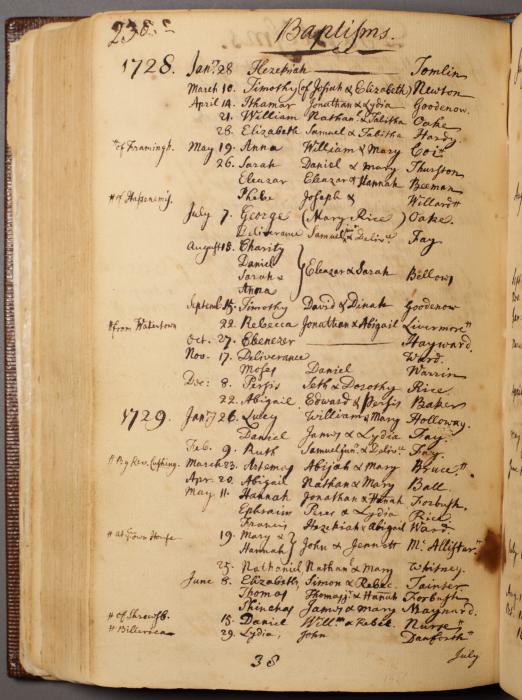 Baptisms.
1728. Jany. 28 Hezekiah Tomlin
March 10. Timothy (of Josiah & Elizabeth) Newton
April 14. Ithamar Jonathan & Lydia Goodenow.
21. William Nathan & Tabitha Oake
28. Elizabeth Samuel & Tabitha Hardy
"of Framingh. May 19. Anna William & Mary Coi"
26. Sarah Daniel & Mary Thurston
Eleazar Eleazar & Hannah Beeman
"of Hassanemis. Phebe Joseph & Willard"
July 7. George (Mary Rice) Oake.
Deliverance Samuel & Delive. Fay
August 18. Charity
Daniel
Sarah &
Anna
Eleazar & Sarah Bellows
Septemb. 15. Timothy David & Dinah Goodenow
"from Watertown 22. Rebecca Jonathan & Abigail Livermore"
Oct. 27. Ebenezer Hayward.
Nov. 17. Deliverance Ward.
Moses Daniel Warrin
Dec: 8. Persis Seth & Dorothy Rice
22. Abigail Edward & Persis Baker
1729. Jany. 26. Lucy William & Mary Holloway.
Daniel James & Lydia Fay
Feb. 9. Ruth Samuel jun. & Delive. Fay.
"By Rev. Cushing. March 23. Artemas Abijah & Mary Bruce."
Apr. 20. Abigail Nathan & Mary Ball
May 11. Hannah Jonathan & Hanah Forbush.
Ephraim Peres & Lydia Rice
Francis Hezekiah & Abigail Ward
"at Town House 19. Mary &
Hannah John & Jennett McAllistar."
25. Nathaniel Nathan & Mary Whitney.
June 8. Elizabeth Simon & Rebec. Tainter
Thomas Thomas & Hanah Forbush
Phinehas James & Mary Maynard.
"of Shrewsb. 15. Daniel Willm & Rebek. Nurse"
"Billerica 29. Lydia, John Danforth"
38 July